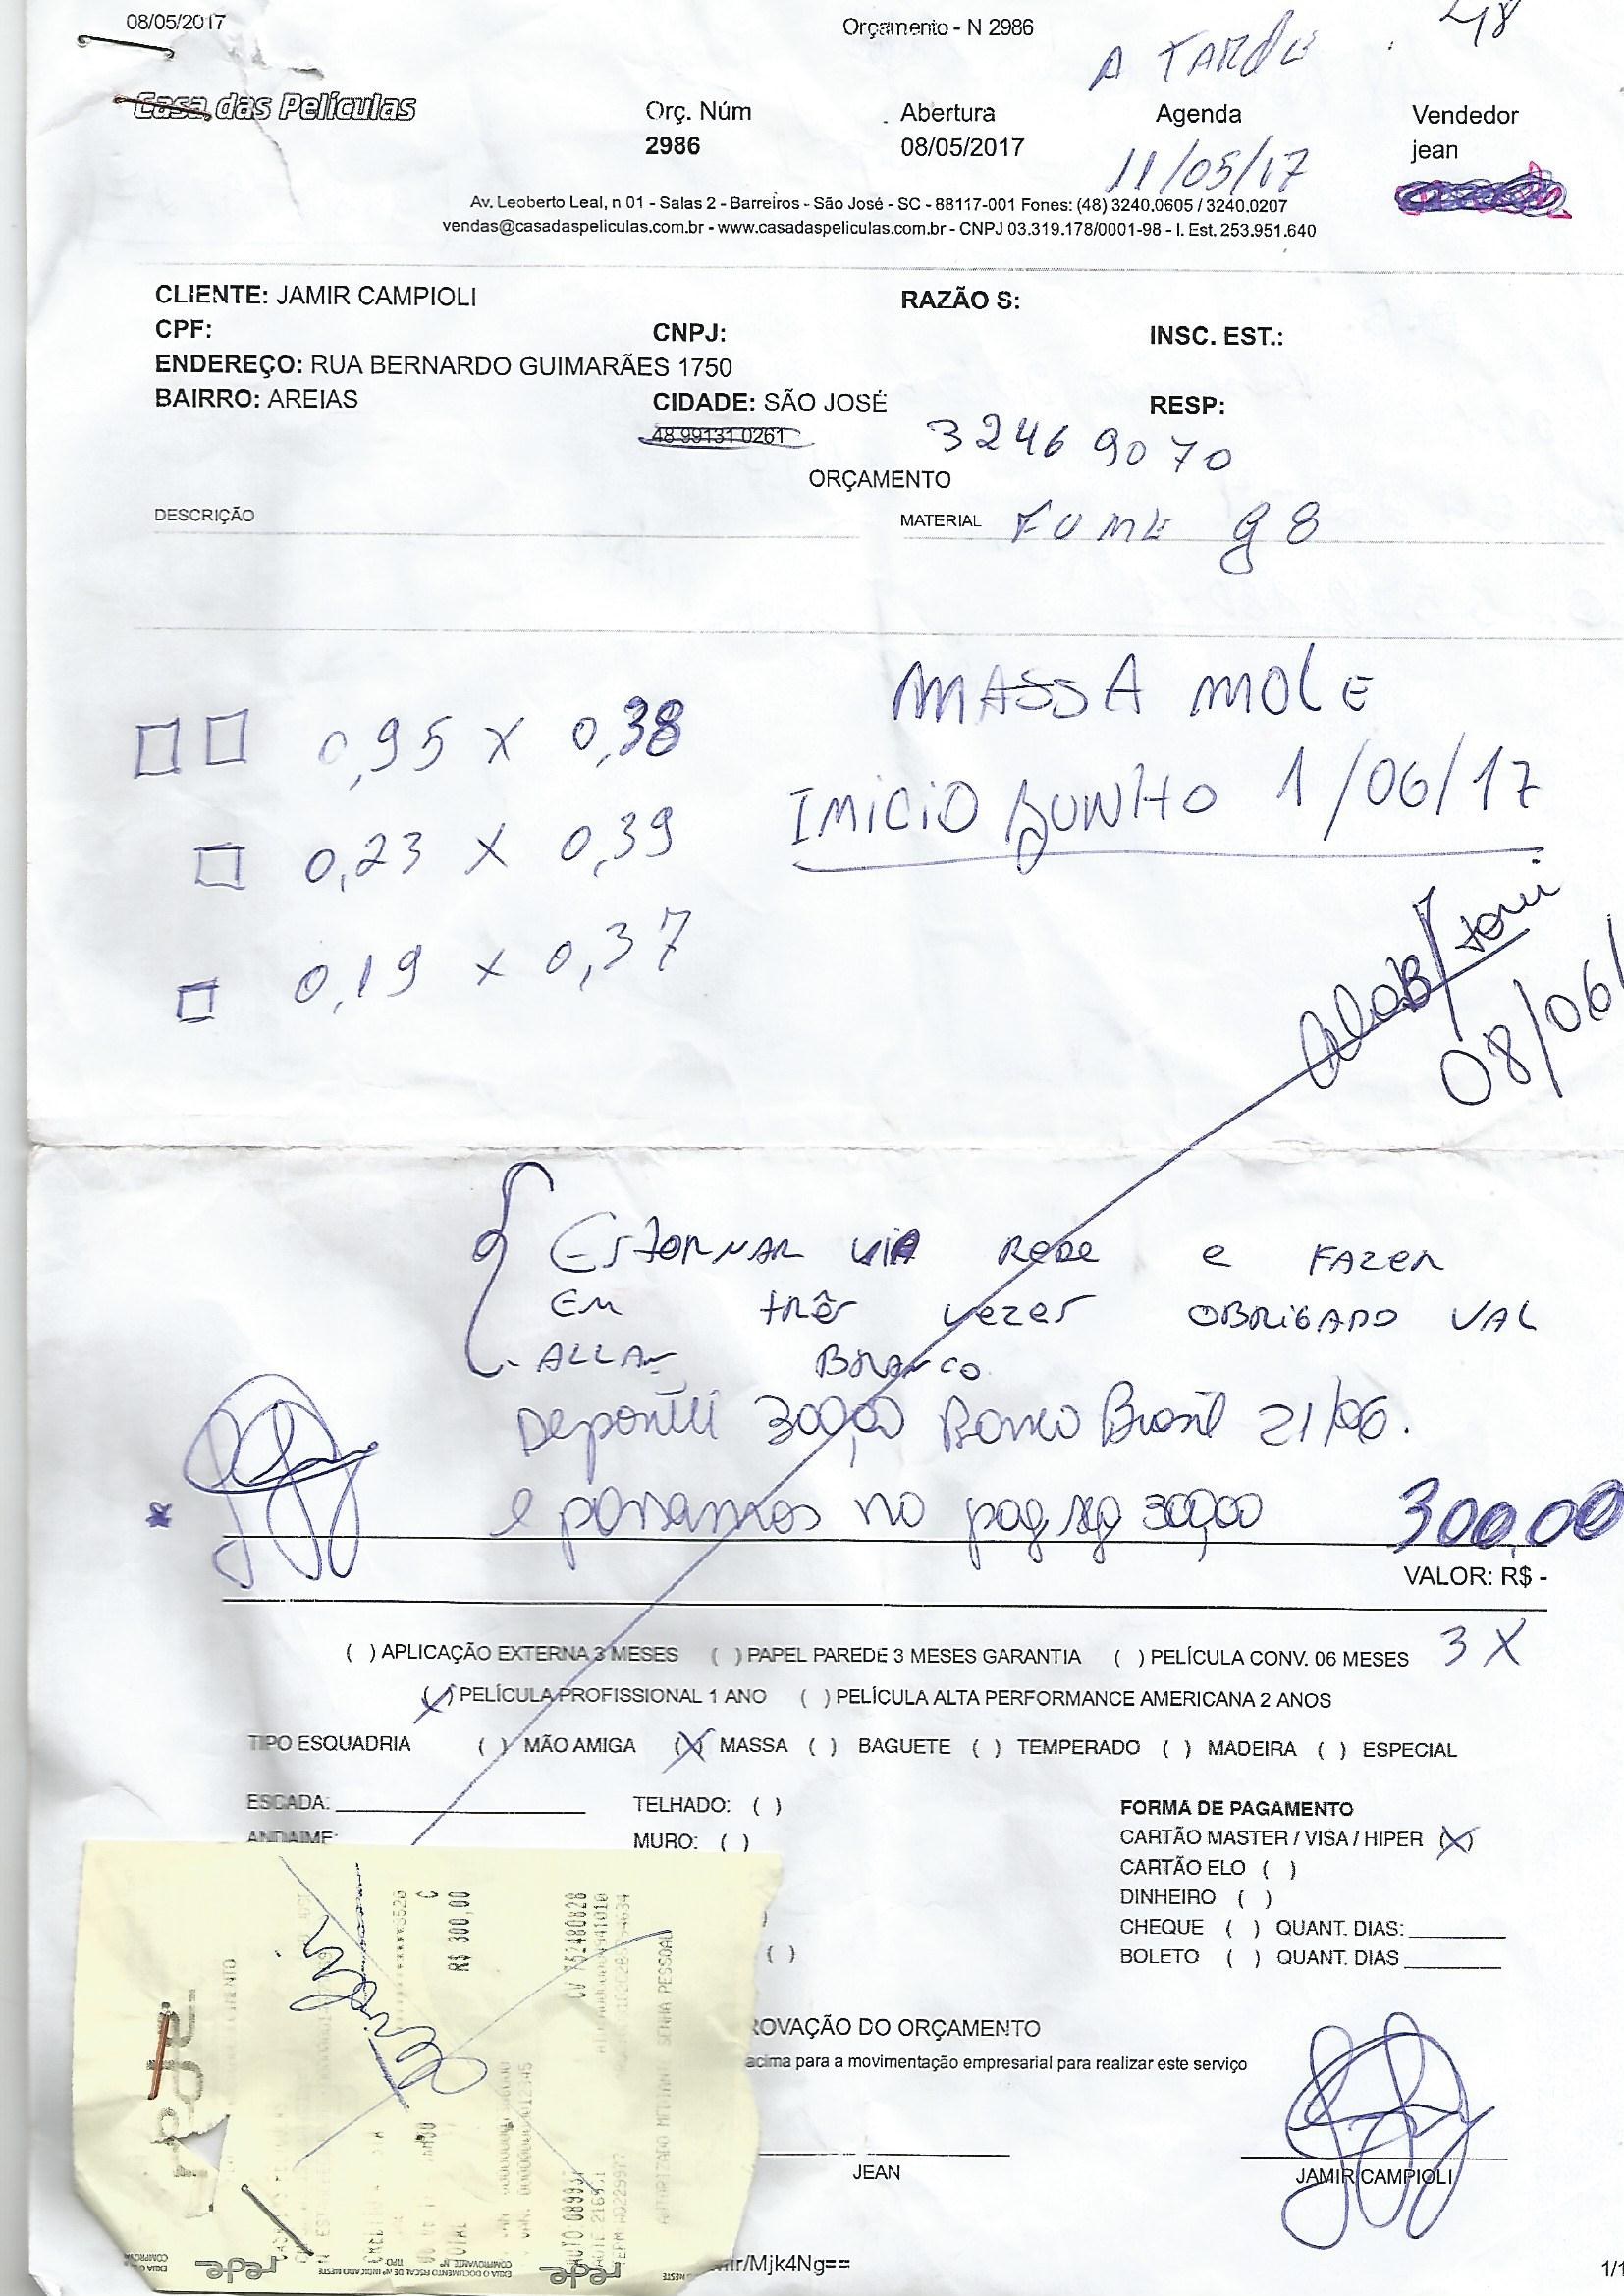 08/05/2017 Orçamento - N 2986 48
A TARDE
Casa das Películas Orç. Núm Abertura Agenda Vendedor
2986 08/05/2017 11/05/17 jean
Av. Leoberto Leal, n 01 - Salas 2 - Barreiros - São José - SC - 88117-001 Fones: (48) 3240.0605 / 3240.0207
vendas@casadaspeliculas.com.br - www.casadaspeliculas.com.br - CNPJ 03.319.178/0001-98 - I. Est. 253.951.640
CLIENTE: JAMIR CAMPIOLI RAZÃO S:
CPF: CNPJ: INSC. EST.:
ENDEREÇO: RUA BERNARDO GUIMARÃES 1750
BAIRRO: AREIAS CIDADE: SÃO JOSÉ RESP:
48 99131 0261 3246 9070
ORÇAMENTO
DESCRIÇÃO MATERIAL FUME g8
MASSA MOLE
0,95 x 0,38
INICIO JUNHO 1/06/17
0,23 x 0,39
0,19 x 0,37
08/06/
ESTORNAR VIA REDE e FAZER
EM TRÊS VEZES OBRIGADO VAL
ALLAN BRANCO
Depositei 300,00 Banco Brasil 21/06.
e passamos no pag seg 300,00 300,00
VALOR: R$ -
( ) APLICAÇÃO EXTERNA 3 MESES ( ) PAPEL PAREDE 3 MESES GARANTIA ( ) PELÍCULA CONV. 06 MESES 3 X
( ) PELÍCULA PROFISSIONAL 1 ANO ( ) PELÍCULA ALTA PERFORMANCE AMERICANA 2 ANOS
TIPO ESQUADRIA ( ) MÃO AMIGA (X) MASSA ( ) BAGUETE ( ) TEMPERADO ( ) MADEIRA ( ) ESPECIAL
ESCADA: TELHADO: ( ) FORMA DE PAGAMENTO
ANDAIME: MURO: ( ) CARTÃO MASTER / VISA / HIPER (X)
CARTÃO ELO ( )
DINHEIRO ( )
CHEQUE ( ) QUANT. DIAS:
( ) BOLETO ( ) QUANT. DIAS
ROVAÇÃO DO ORÇAMENTO
acima para a movimentação empresarial para realizar este serviço
JEAN JAMIR CAMPIOLI
/Mjk4Ng== 1/1
rede
R$ 300,00
CV 752480828
SENHA PESSOAL
rede
rede